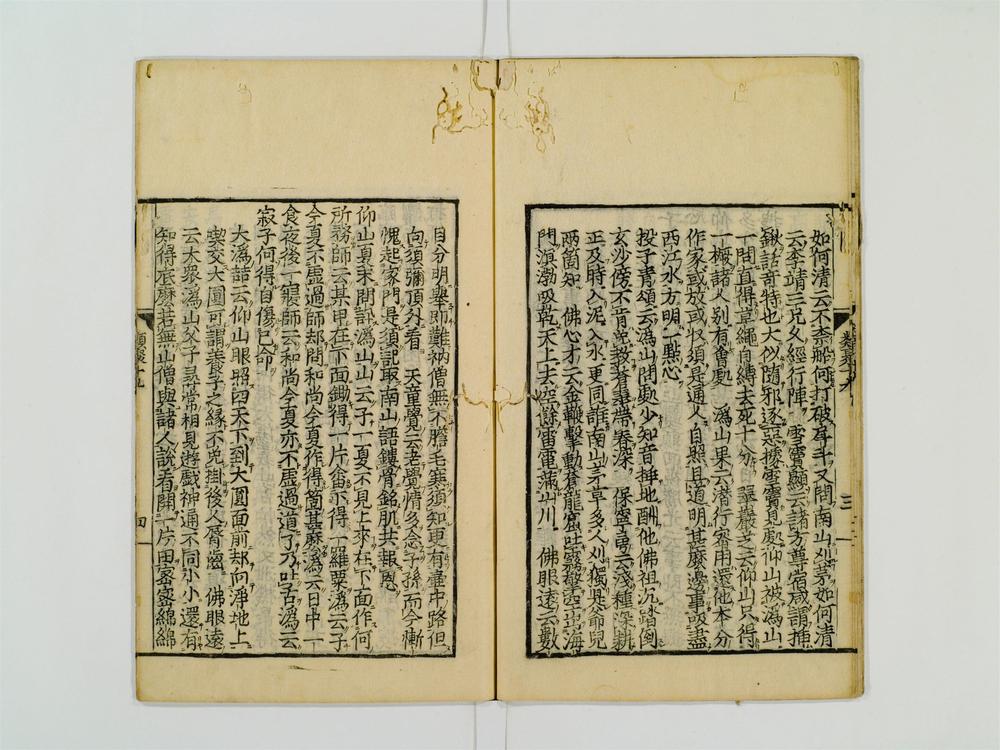 如何清云不奈船何打破戽斗又問南山刈茅如何清
云李靖三兄久經行陣　雪竇顯云諸方尊宿咸謂插
鍬話奇特也大似隨邪逐惡據雪竇見處仰山被溈山
一問直得草繩自縛去死十分　翠巖芝云仰山只得
一橛諸人別有會處　溈山果云潛行密用還他本分
作家或放或收須是通人自照且道明甚麼邊事吸盡
西江水方明一點心
投子青頌云溈山問處少知音揷地酬他佛祖沉踏倒
玄沙傍不肯免教蒼翠帶春深　保寧勇云淺種深耕
正及時入泥入水更同誰南山茅草多人刈獨是爺兒
兩箇知　佛心才云金鞭擊動蒼龍窟吐霧驚濤出海
門溟渤吸乾天上去空餘雷電滿山川　佛眼遠云數
目分明舉即難衲僧無不膽毛寒須知更有壷中路但
向須彌頂外看　天童覺云老覺情多念子孫而今慚
愧起家門是須記取南山語鏤骨銘肌共報恩
仰山夏末問訊溈山山云子一夏不見上來在下面作何
所務師云某甲在下面鋤得一片畬下得一籮粟溈云子
今夏不虛過師却問和尚今夏作得箇甚麼溈云日中一
食夜後一寢師云和尚今夏亦不虛過道了乃吐舌溈云
寂子何得自傷己命
大溈喆云仰山眼照四天下到大圓面前却向淨地上
喫交大圓可謂養子之緣不免掛後人脣齒　佛眼遠
云大衆溈山父子尋常相見遊戲神通不同小小還有
知得底麼若無山僧與諸人說看開一片田密密綿綿
類聚十九
三
四